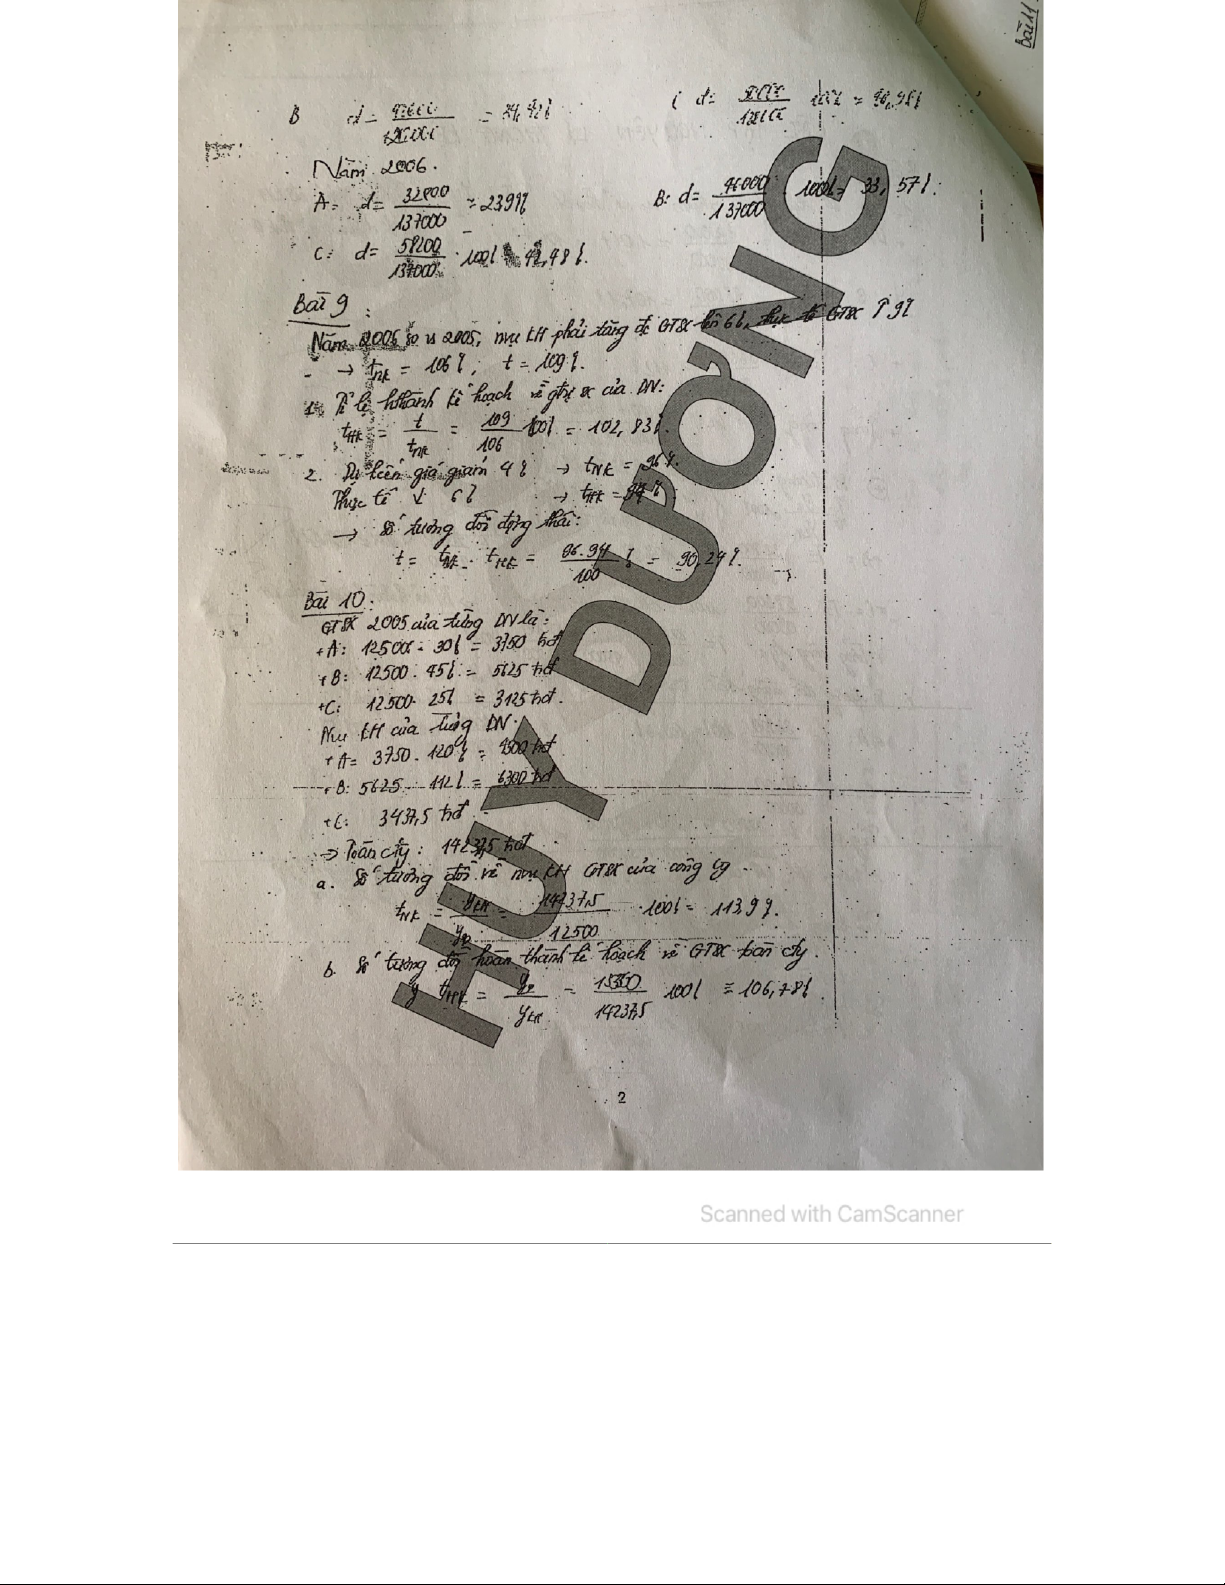 Bài 11
B d =
C d =
Năm 2006.
A = d = 32800/137000 ≈ 23,9% B: d = 46000/137000 . 100% = 33,57%.
C: d = 58200/137000 . 100% = 42,48%.
Bài 9:
Năm 2006 so vs 2005, nvụ KH phải tăng đc GTSX lên 6%, thực tế GTSX ↑ 9%
→ tNK = 106%; t = 109%.
1. Tỉ lệ hthành kế hoạch về gtrị sx của DN:
tHK = t/tNK = 109/106 100% = 102,83%.
2. Dự kiến giá giảm 4% → tNK = 96%.
Thực tế ↓ 6% → tHK = 94%
→ Số tương đối động thái:
t = tNK . tHK = 96.94/100 % = 90,24%.
Bài 10:
GTSX 2005 của từng DN là:
+A: 12500 . 30% = 3750 trđ
+B: 12500 . 45% = 5625 trđ
+C: 12500 . 25% = 3125 trđ.
Nvụ KH của từng DN.
+A = 3750 . 120% = 4500 trđ
+B: 5625 . 112% = 6300 trđ
+C: 3437,5 trđ
⇒ Toàn cty: 14237,5 trđ
a. Số tương đối về nvụ KH GTSX của công ty.
tNK = yKH/y0 = 14237,5/12500 . 100% = 113,9%.
b. Số tương đối hoàn thành kế hoạch về GTSX toàn cty.
tHK = /yKH = /14237,5 100% ≈ 106,78%.
2
HUY DƯƠNG
Scanned with CamScanner